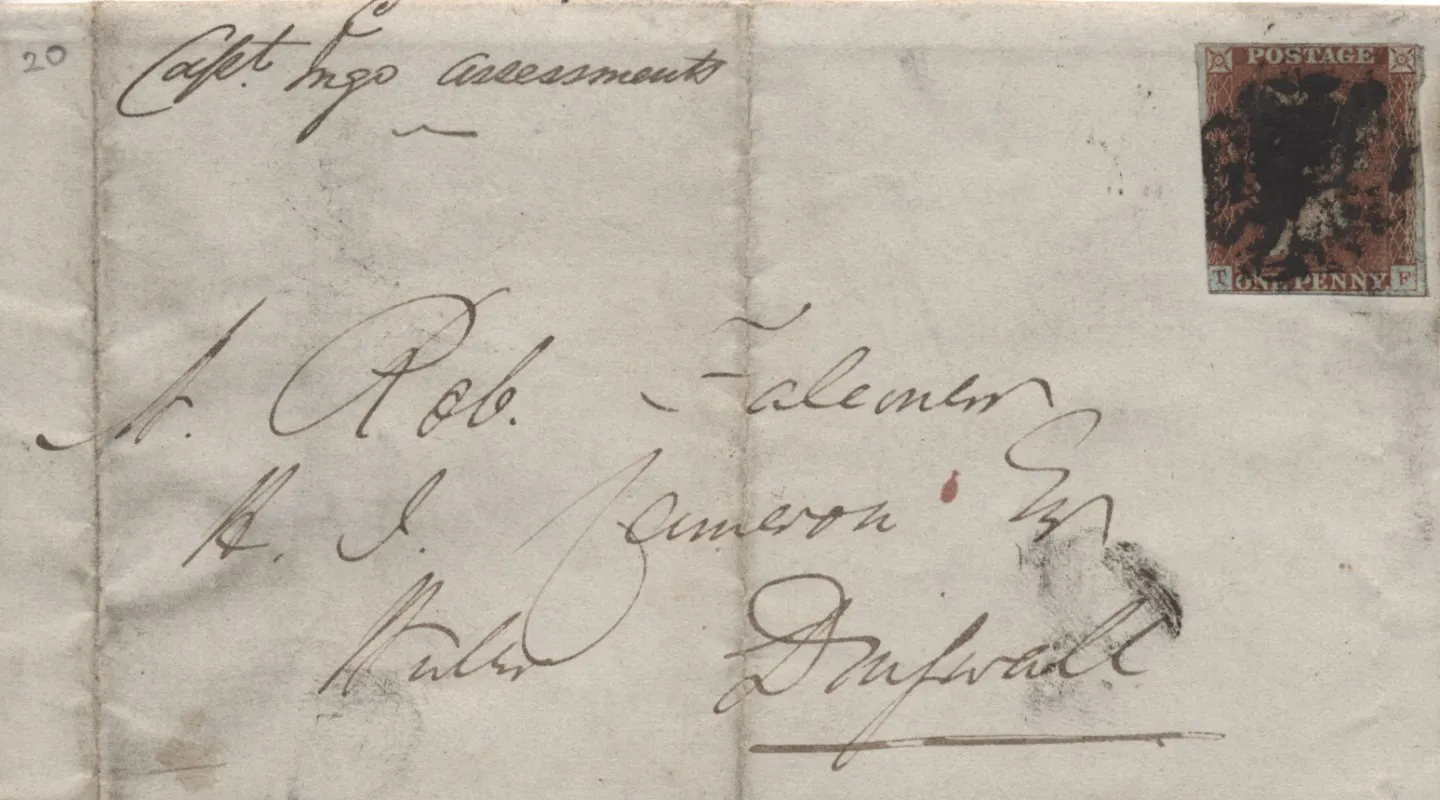 20
Capt. Ingo assessments
POSTAGE
T ONE PENNY F
Rob. Falconer
H. I. Cameron Esqr
Writer Dingwall